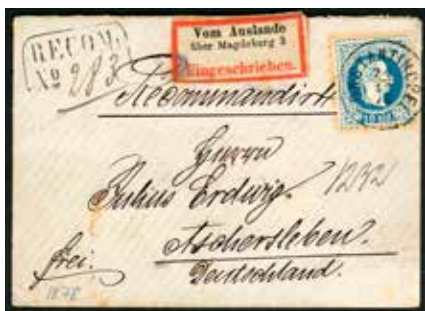 RECOM.
No 283
Vom Auslande
über Magdeburg 3
Eingeschrieben.
Recommandirt
Herrn
Julius Erdwig.
1232
Aschersleben.
frei.
Deutschland.
1878